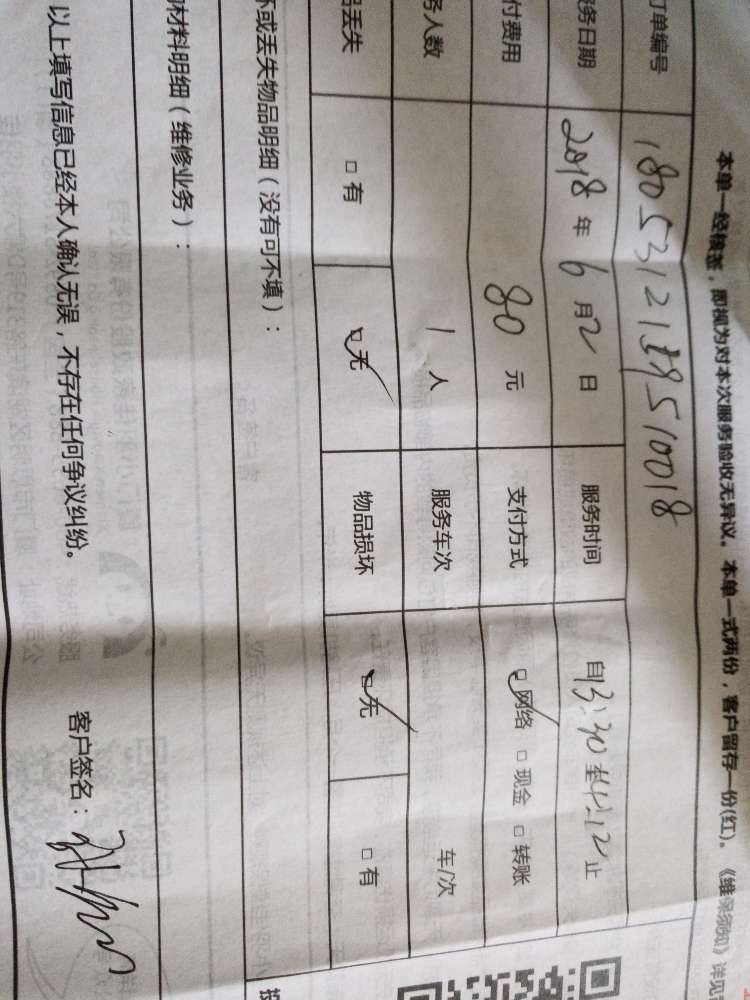 本单一经核签，即视为对本次服务验收无异议。本单一式两份，客户留存一份(红)。《维保须知》详见
订单编号
务日期 2018年6月2日 服务时间 自13:30至 止
付费用 80元 支付方式 网络 □现金 □转账
务人数 1人 服务车次 车/次
丢失 □有 □无 物品损坏 □无 □有
坏或丢失物品明细（没有可不填）：
材料明细（维修业务）：
以上填写信息已经本人确认无误，不存在任何争议纠纷。 客户签名：